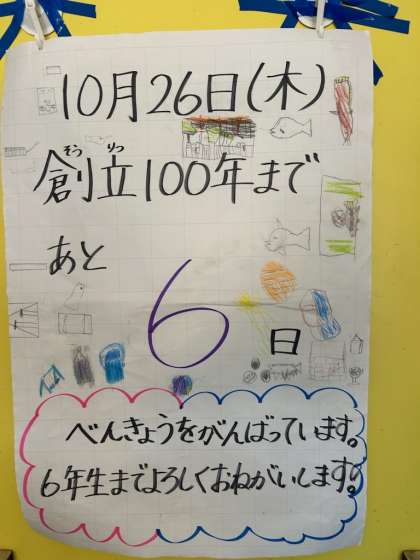 10月26日(木)
そう りつ
創立100年まで
あと
6日
べんきょうをがんばっています。
6年生までよろしくおねがいします。